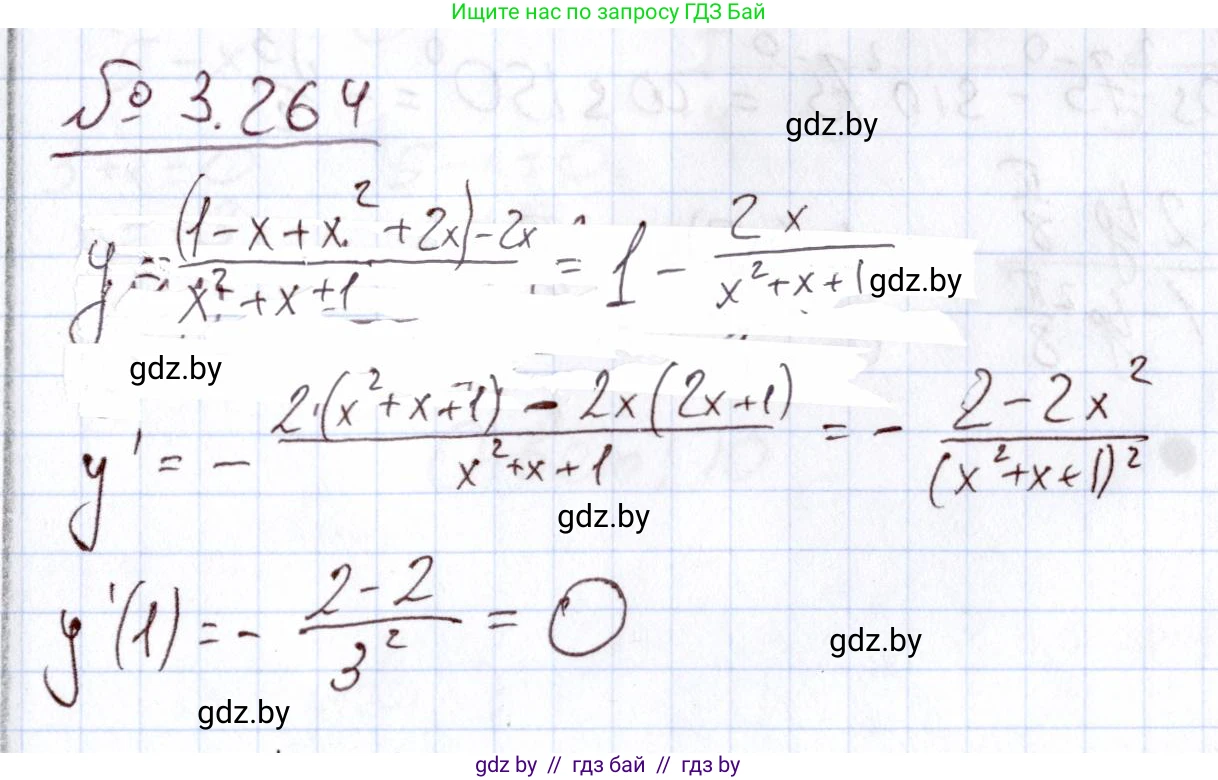 Ищите нас по запросу ГДЗ Бай
№ 3.264
gdz.by
y = ((1 - x + x² + 2x) - 2x) / (x² + x + 1) = 1 - 2x / (x² + x + 1)
gdz.by
gdz.by
y' = - (2·(x² + x + 1) - 2x(2x + 1)) / (x² + x + 1) = - (2 - 2x²) / (x² + x + 1)²
gdz.by
y'(1) = - (2 - 2) / 3² = 0
gdz.by
gdz.by
gdz by // гдз бай // гдз by